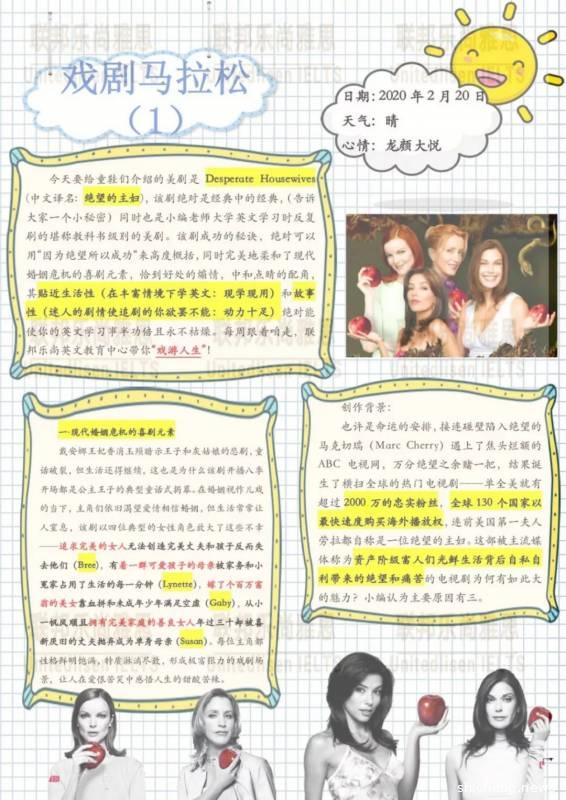 戏剧马拉松
(1)
日期:2020年2月20日
天气: 晴
心情: 龙颜大悦
今天要给童鞋们介绍的美剧是 Desperate Housewives
(中文译名: 绝望的主妇), 该剧绝对是经典中的经典, (告诉
大家一个小秘密) 同时也是小编老师大学英文学习时反复
刷的堪称教科书级别的美剧。该剧成功的秘诀, 绝对可以
用“因为绝望所以成功”来高度概括, 同时完美地柔和了现代
婚姻危机的喜剧元素, 恰到好处的煽情, 中和点睛的配角,
其贴近生活性 (在丰富情境下学英文: 现学现用) 和故事
性 (迷人的剧情使追剧的你欲罢不能: 动力十足) 绝对能
使你的英文学习事半功倍且永不枯燥。每周跟着咱走, 联
邦乐尚英文教育中心带你“戏游人生”!
一.现代婚姻危机的喜剧元素
戴安娜王妃香消玉殒暗示王子和灰姑娘的悲剧, 童
话破裂, 但生活还得继续, 这也是为什么该剧开播八季
开场都是公主王子的典型童话式扔幕。在婚姻视作儿戏
的当下, 主角们依旧渴望爱情相信婚姻, 但生活常常让
人窒息, 该剧以四位典型的女性角色放大了这些不幸
——追求完美的女人无法创造完美丈夫和孩子反而失
去他们 (Bree), 有着一群可爱孩子的母亲被家务和小
冤家占用了生活的每一分钟 (Lynette), 嫁了个百万富
翁的美女靠血拼和未成年少年满足空虚 (Gaby), 从小
一帆风顺且拥有完美家庭的善良女人年过三十却被喜
新厌旧的丈夫抛弃成为单身母亲 (Susan)。每位主角都
性格鲜明饱满, 特质淋漓尽致, 形成极富张力的戏剧场
景, 让人在爱恨苦笑中感悟人生的甜酸苦辣。
创作背景:
也许是命运的安排, 接连碰壁陷入绝望的
马克切瑞 (Marc Cherry) 遇上了焦头烂额的
ABC 电视网, 万分绝望之余赌一把, 结果诞
生了横扫全球的热门电视剧——单全美就有
超过 2000 万的忠实粉丝, 全球 130 个国家以
最快速度购买海外播放权, 连前美国第一夫人
劳拉都自称是一位绝望的主妇。这部被主流媒
体称为资产阶级富人们光鲜生活背后自私自
利带来的绝望和痛苦的电视剧为何有如此大
的魅力? 小编认为主要原因有三。
联邦乐尚雅思
UnitedLisen IELTS
shicheng.news